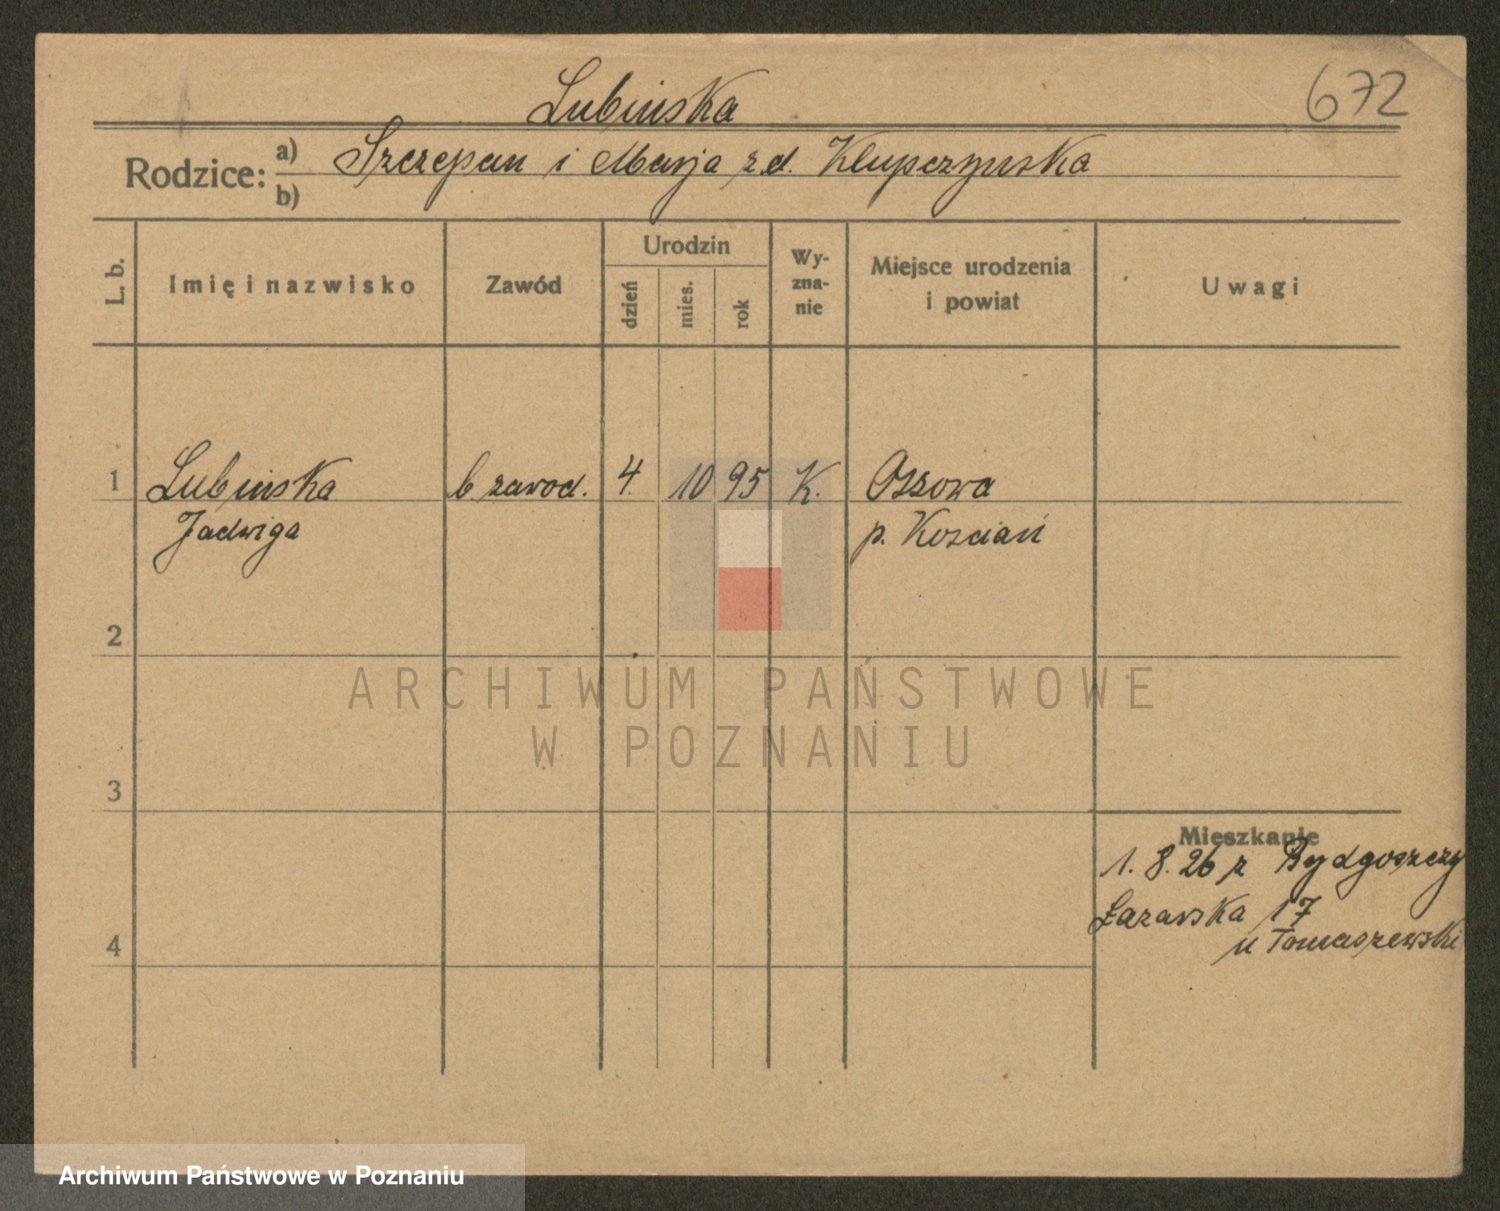 Lubinska
672
Rodzice: a) Szczepan i Marja z.d. Klupczynska
b)
L. b.
Imię i nazwisko
Zawód
Urodzin
dzień
mies.
rok
Wy-
zna-
nie
Miejsce urodzenia
i powiat
Uwagi
1 Lubinska b zawod. 4. 10 95 K. Ossowa
Jadwiga p. Koscian
2
3
4
Mieszkanie
1. 8. 26 z Bydgoszczy
Łazarska 17
u Tomaszewski
ARCHIWUM PAŃSTWOWE
W POZNANIU
Archiwum Państwowe w Poznaniu